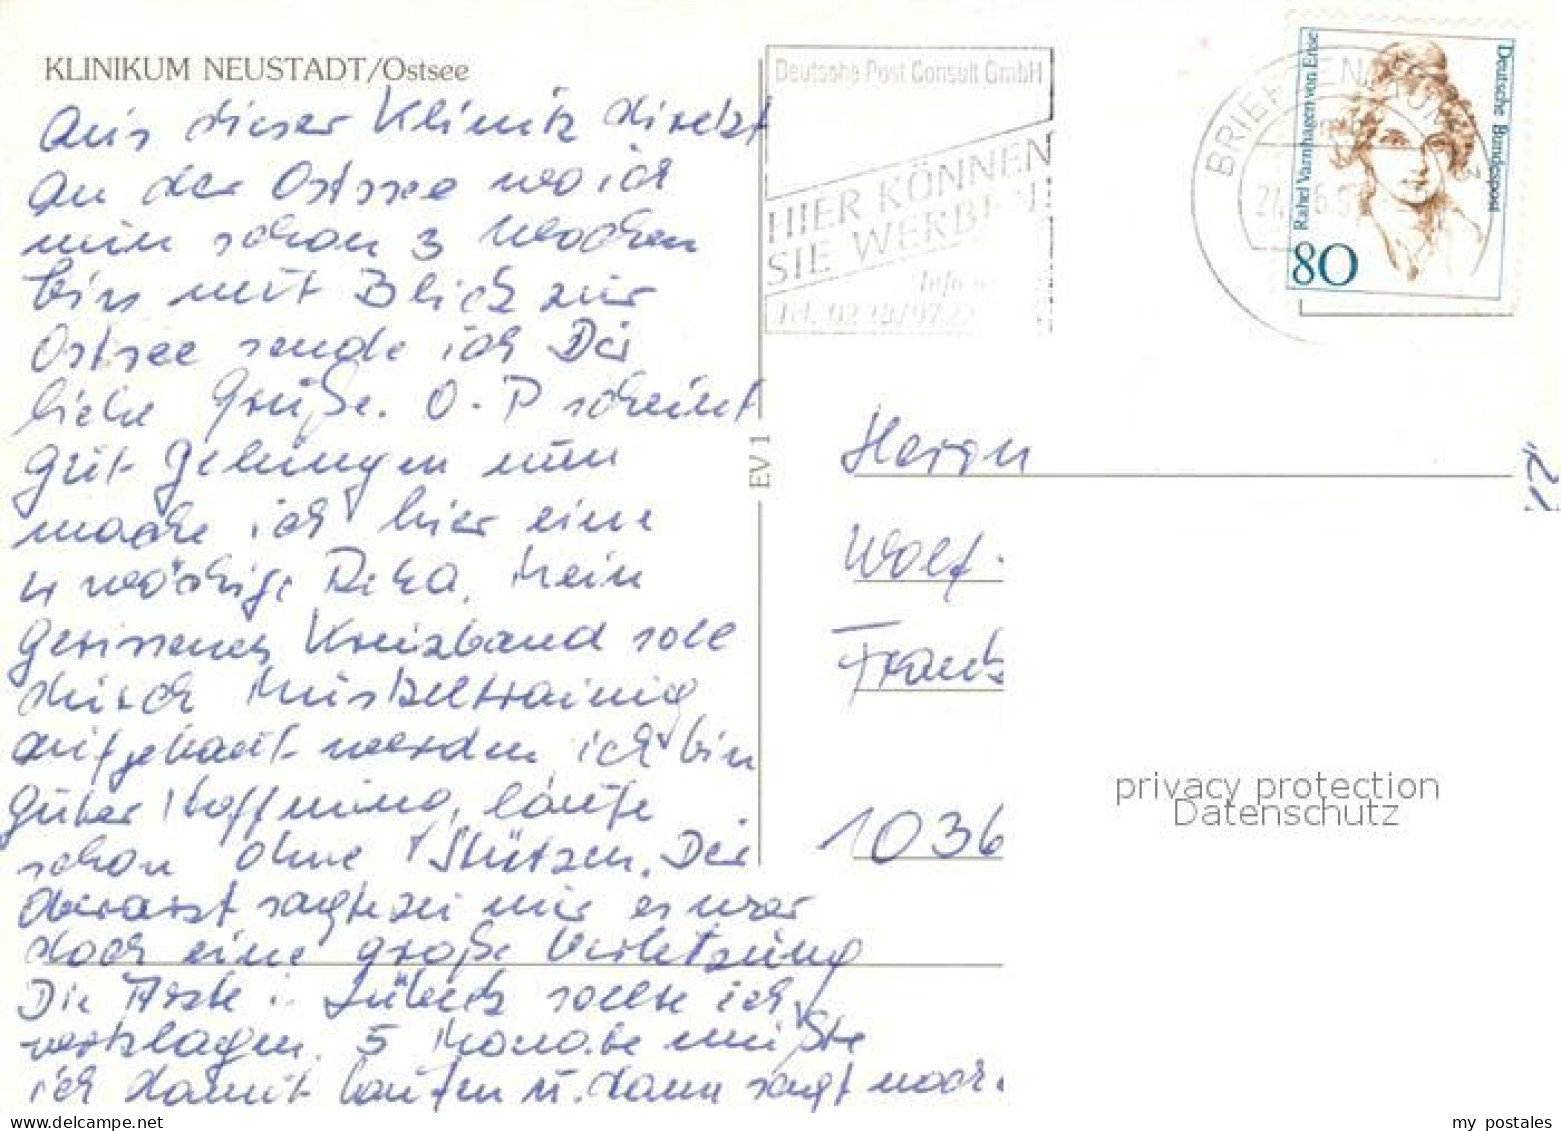 KLINIKUM NEUSTADT/Ostsee
Aus dieser Klinik direkt
an der Ostsee wo ich
nun schon 3 Wochen
bin mit Blick zur
Ostsee sende ich Dir
liebe Grüße. O.P scheint
gut gelungen nun
mache ich hier eine
4 wöchige Reha. Mein
gerissenes Kreuzband soll
durch Muskeltraining
aufgebaut werden, ich bin
guter Hoffnung, laufe
schon ohne Stützen. Der
Oberarzt sagte zu mir es war
doch eine große Verletzung
Die Ärzte i. Lübeck sollte ich
verklagen. 5 Monate mußte
ich damit laufen u. dann sagt noch
EV 1
Deutsche Post Consult GmbH
HIER KÖNNEN
SIE WERBEN!
Tel. 0228/97
BRIEFZENTRUM
Rahel Varnhagen von Ense
Deutsche Bundespost
80
Herrn
Wolf
Frank
1036
privacy protection
Datenschutz
my postales